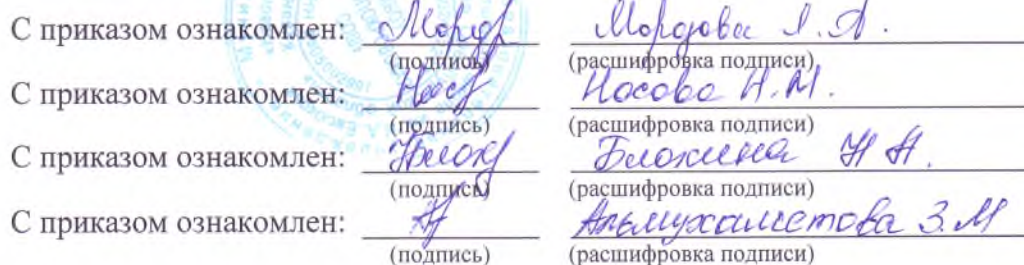 С приказом ознакомлен: Мордф Мордова Л. А.
(подпись) (расшифровка подписи)
С приказом ознакомлен: Нос Носова Н.М.
(подпись) (расшифровка подписи)
С приказом ознакомлен: Блох Блохина Н Н.
(подпись) (расшифровка подписи)
С приказом ознакомлен: Альмухаметова З.М
(подпись) (расшифровка подписи)